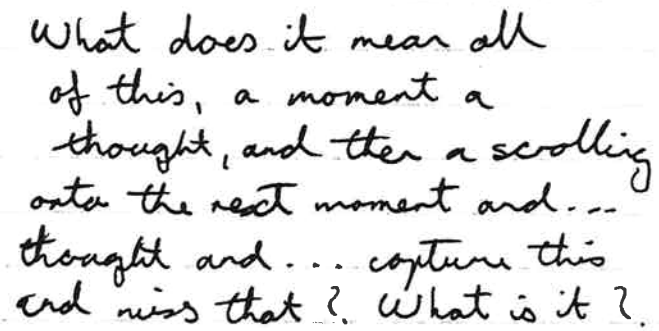 What does it mean all
of this, a moment a
thought, and then a scrolling
onto the next moment and...
thought and... capture this
and miss that? What is it?